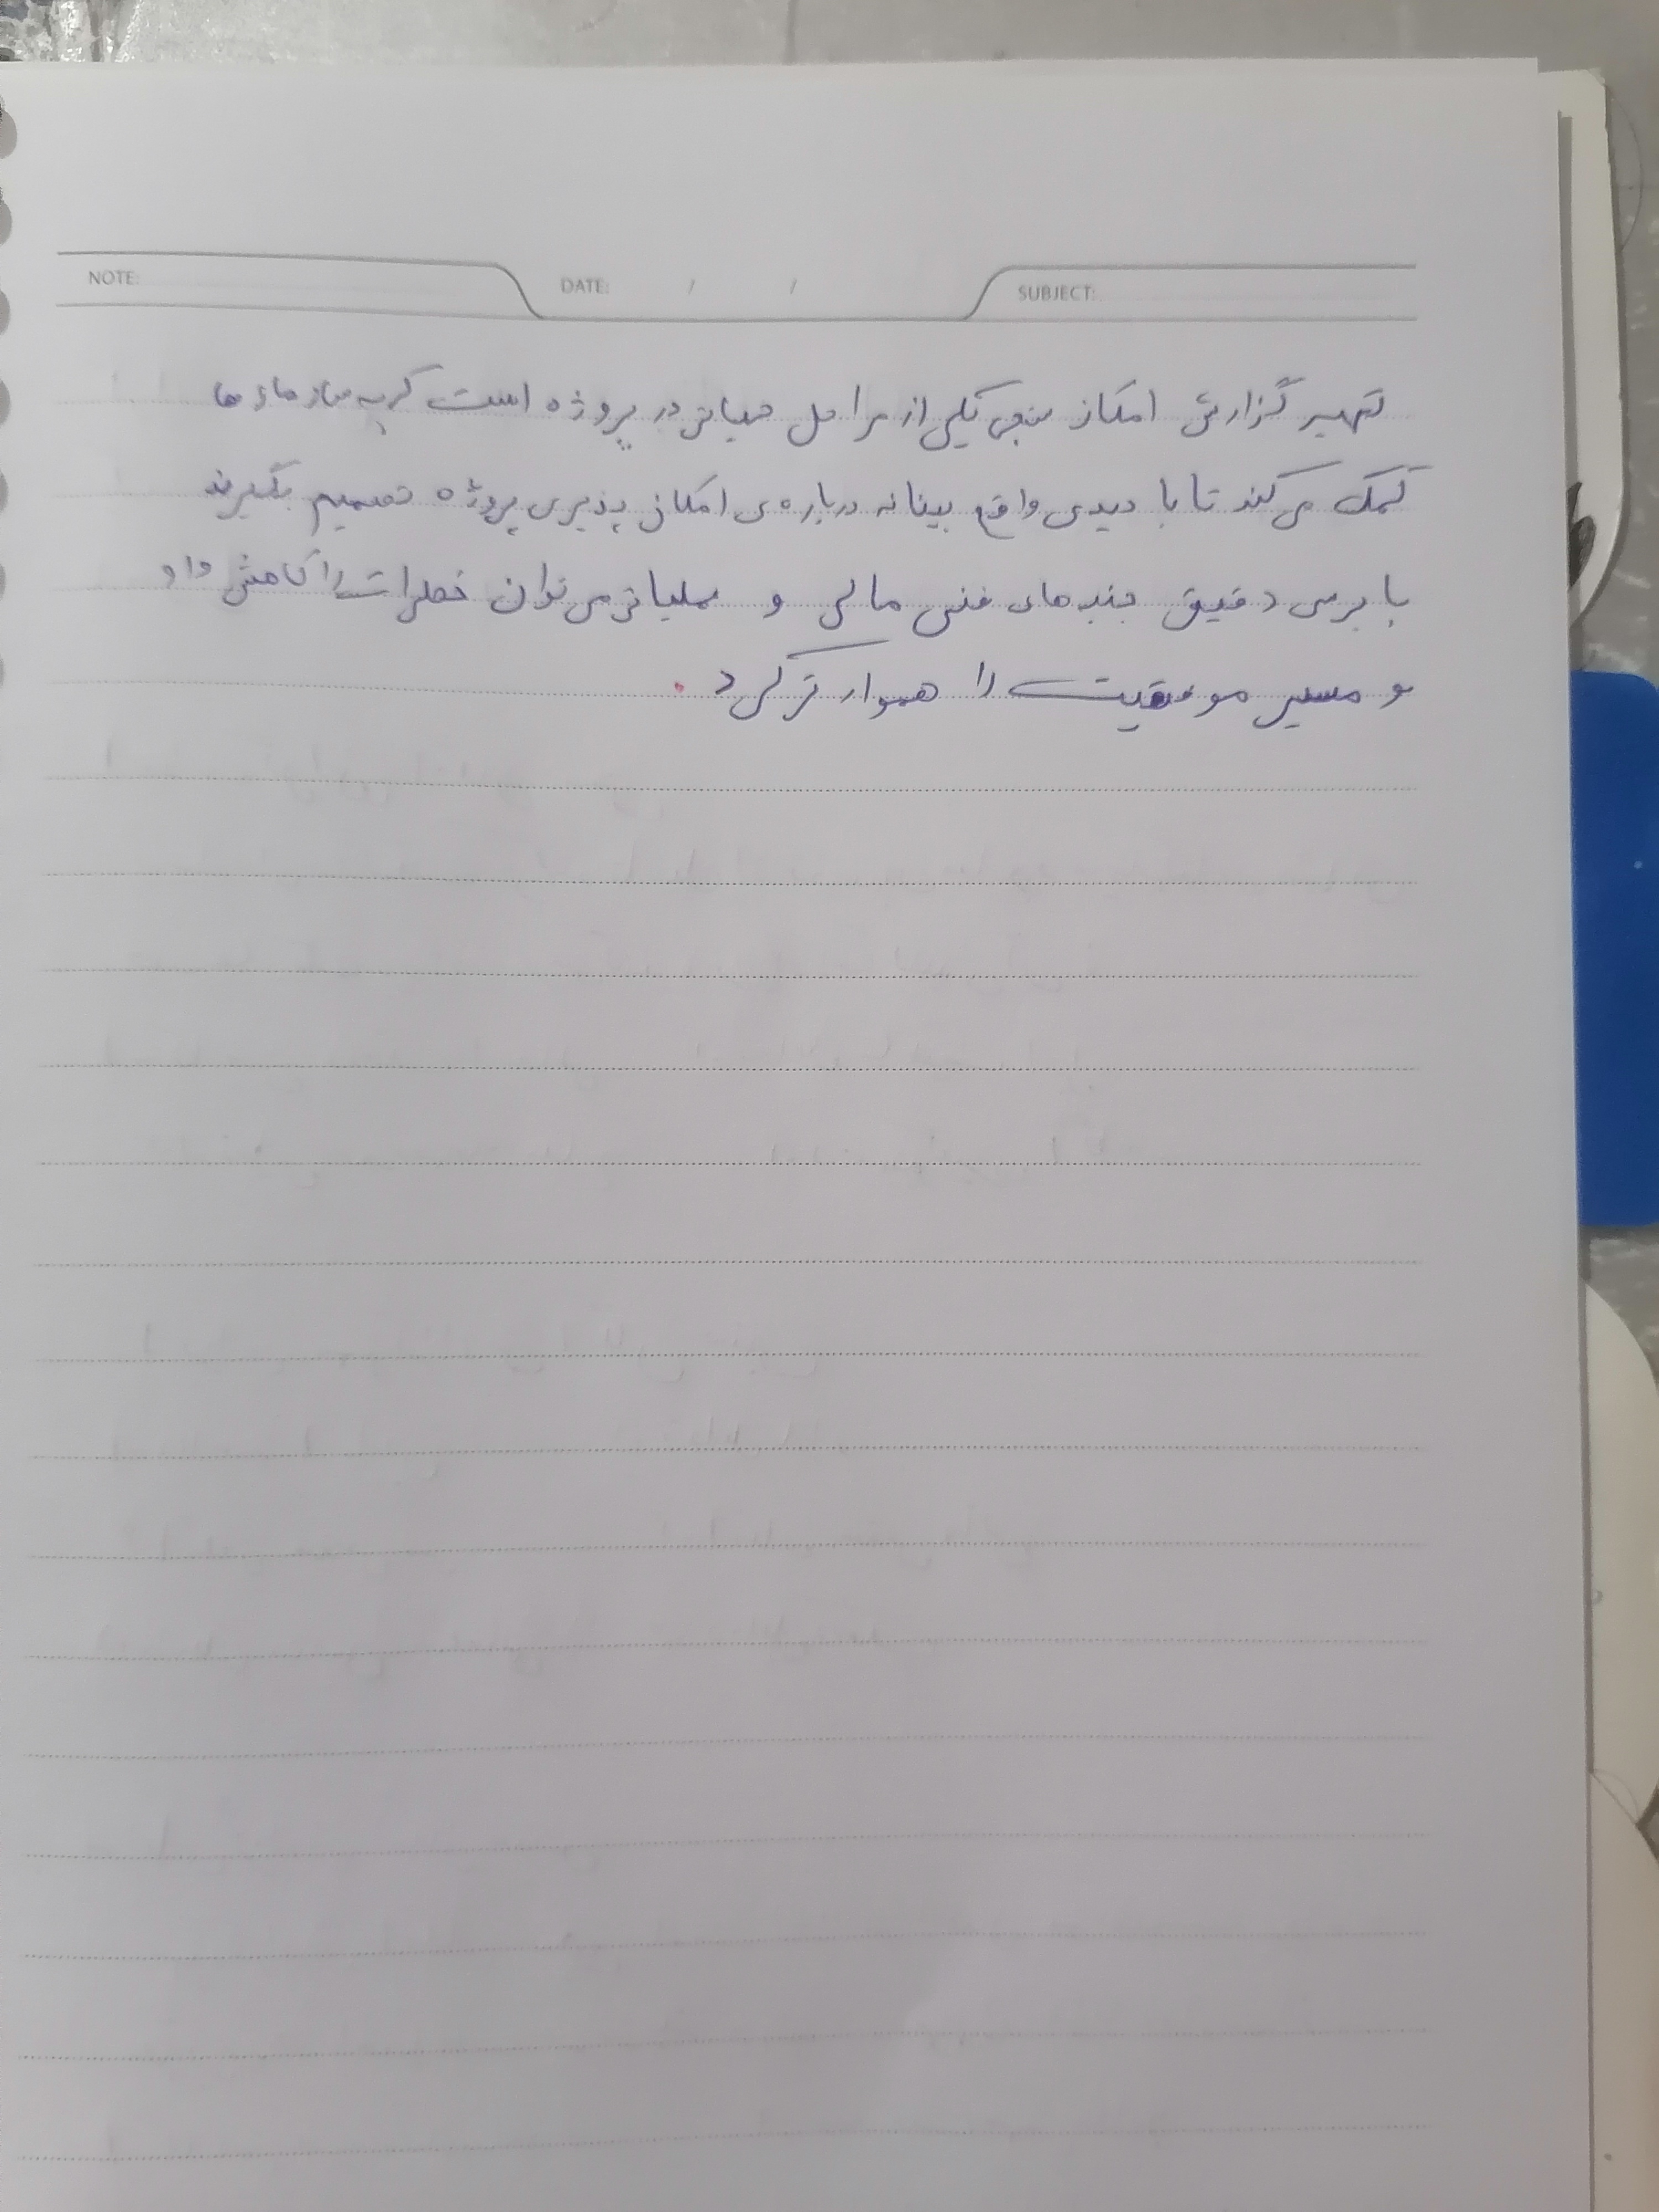 NOTE: DATE: / / SUBJECT:
تهیه گزارش امکان سنجی یکی از مراحل حیاتی در پروژه است که به سازمان ها
کمک می کند تا با دیدی واقع بینانه درباره ی امکان پذیری پروژه تصمیم بگیرند
با بررسی دقیق جنبه های فنی مالی و عملیاتی می توان خطرات را کاهش داد
و مسیر موفقیت را هموار تر کرد .